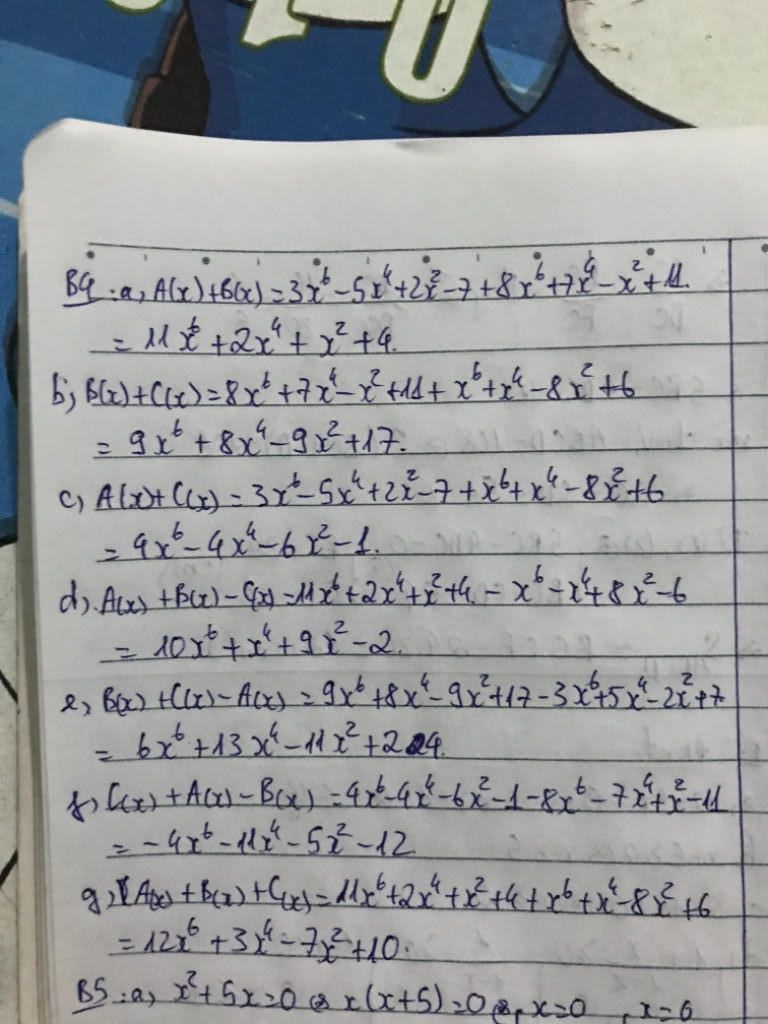 B4: a, A(x)+B(x)=3x⁶-5x⁴+2x²-7+8x⁶+7x⁴-x²+11.
= 11x⁶+2x⁴+x²+4.
b, B(x)+C(x)=8x⁶+7x⁴-x²+11+x⁶+x⁴-8x²+6
= 9x⁶+8x⁴-9x²+17.
c, A(x)+C(x)=3x⁶-5x⁴+2x²-7+x⁶+x⁴-8x²+6
= 4x⁶-4x⁴-6x²-1.
d, A(x)+B(x)-C(x)=11x⁶+2x⁴+x²+4-x⁶-x⁴+8x²-6
= 10x⁶+x⁴+9x²-2.
e, B(x)+C(x)-A(x)=9x⁶+8x⁴-9x²+17-3x⁶+5x⁴-2x²+7
= 6x⁶+13x⁴-11x²+24.
f, C(x)+A(x)-B(x)=4x⁶-4x⁴-6x²-1-8x⁶-7x⁴+x²-11
= -4x⁶-11x⁴-5x²-12
g, A(x)+B(x)+C(x)=11x⁶+2x⁴+x²+4+x⁶+x⁴-8x²+6
= 12x⁶+3x⁴-7x²+10.
B5: a, x²+5x=0 x(x+5)=0 x=0, x=